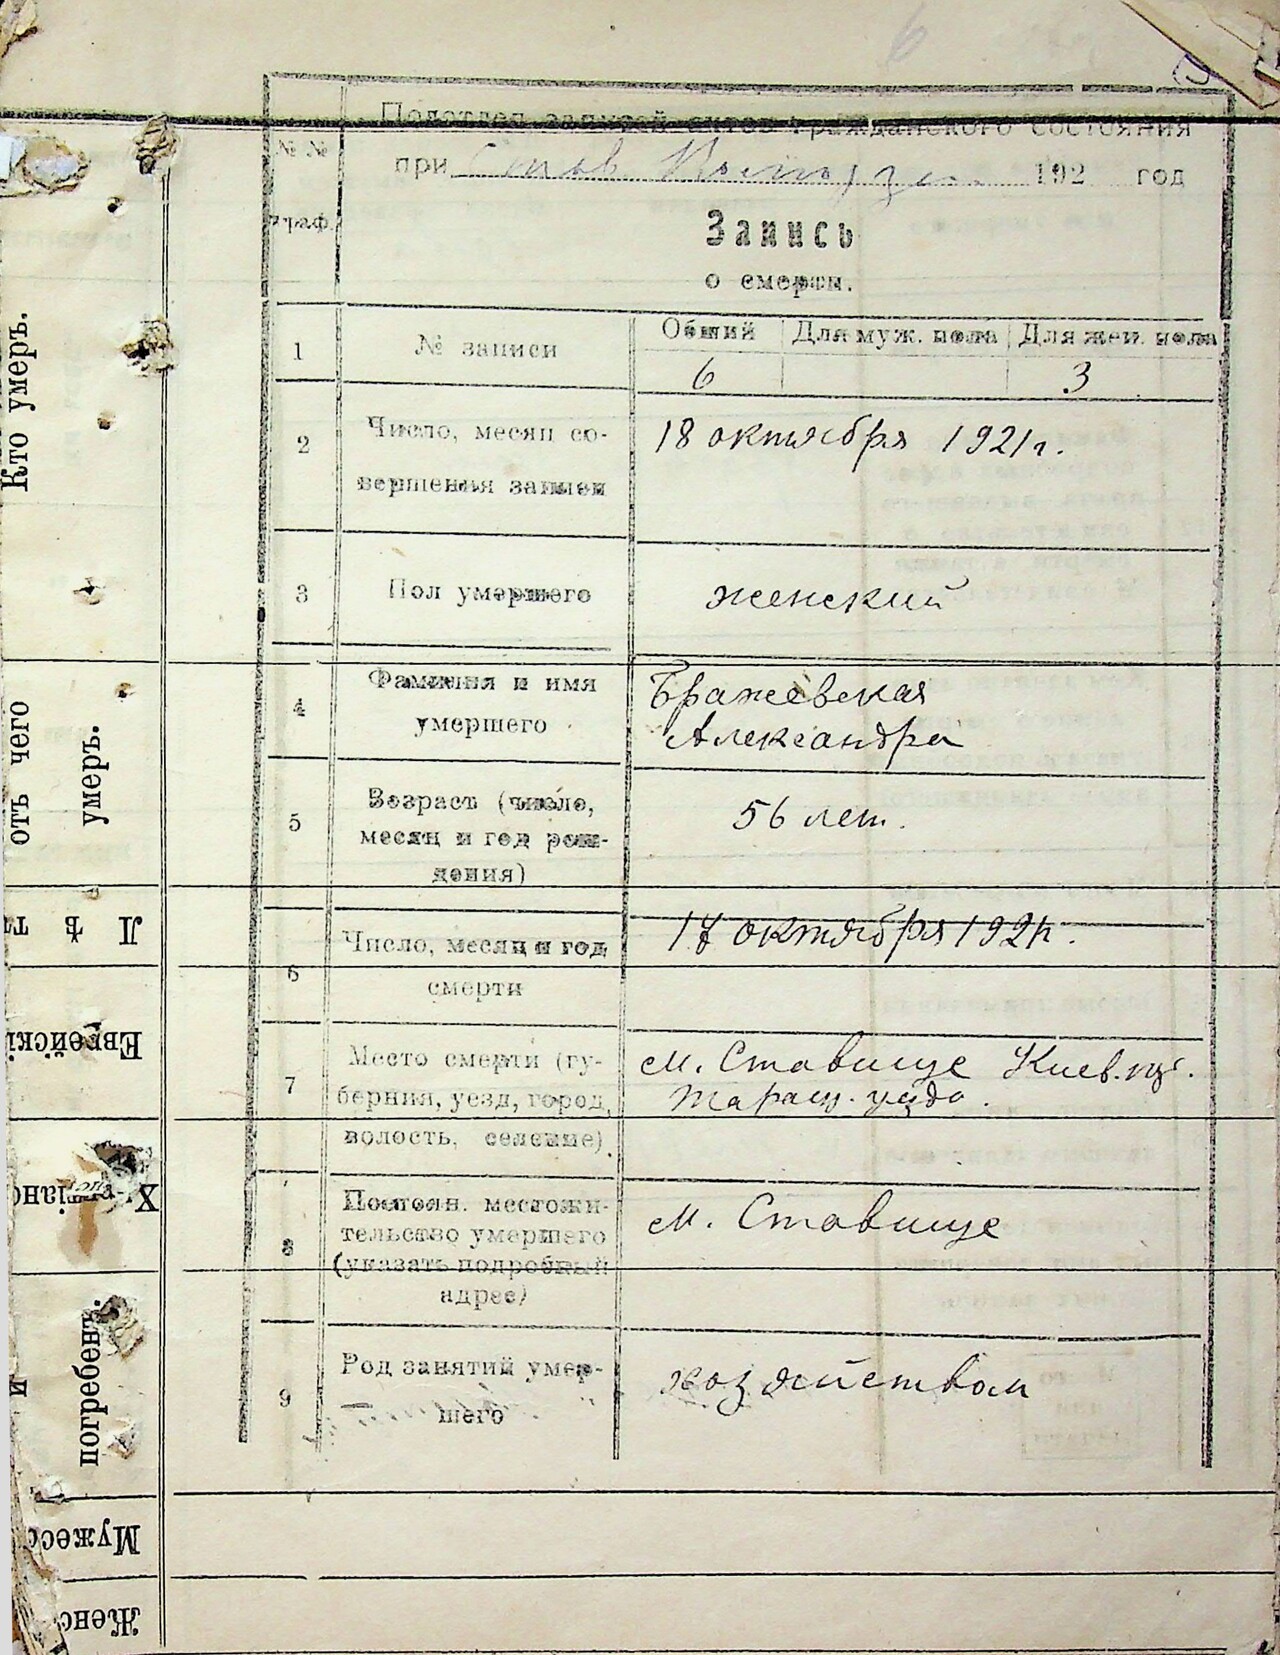 6
Подотдел записей актов гражданского состояния
№ №
при Став 192 год
граф.
Запись
о смерти.
1 № записи Общий Для муж. пола Для жен. пола
6 3
2 Число, месяц со-
вершения записи
18 октября 1921 г.
3 Пол умершего женский
4 Фамилия и имя
умершего
Бражевская
Александра
5 Возраст (число,
месяц и год рож-
дения)
56 лет.
6 Число, месяц и год
смерти
17 октября 1921 г.
7 Место смерти (гу-
берния, уезд, город,
волость, селение)
м. Ставище Киев. губ.
Таращ. уезда.
8 Постоян. местожи-
тельство умершего
(указать подробный
адрес)
м. Ставище
9 Род занятий умер-
шего
хозяйством
Кто умеръ.
отъ чего
умеръ.
Лѣта
Еврейскі
Христіанс
и
погребенъ.
Мужесс
Женс